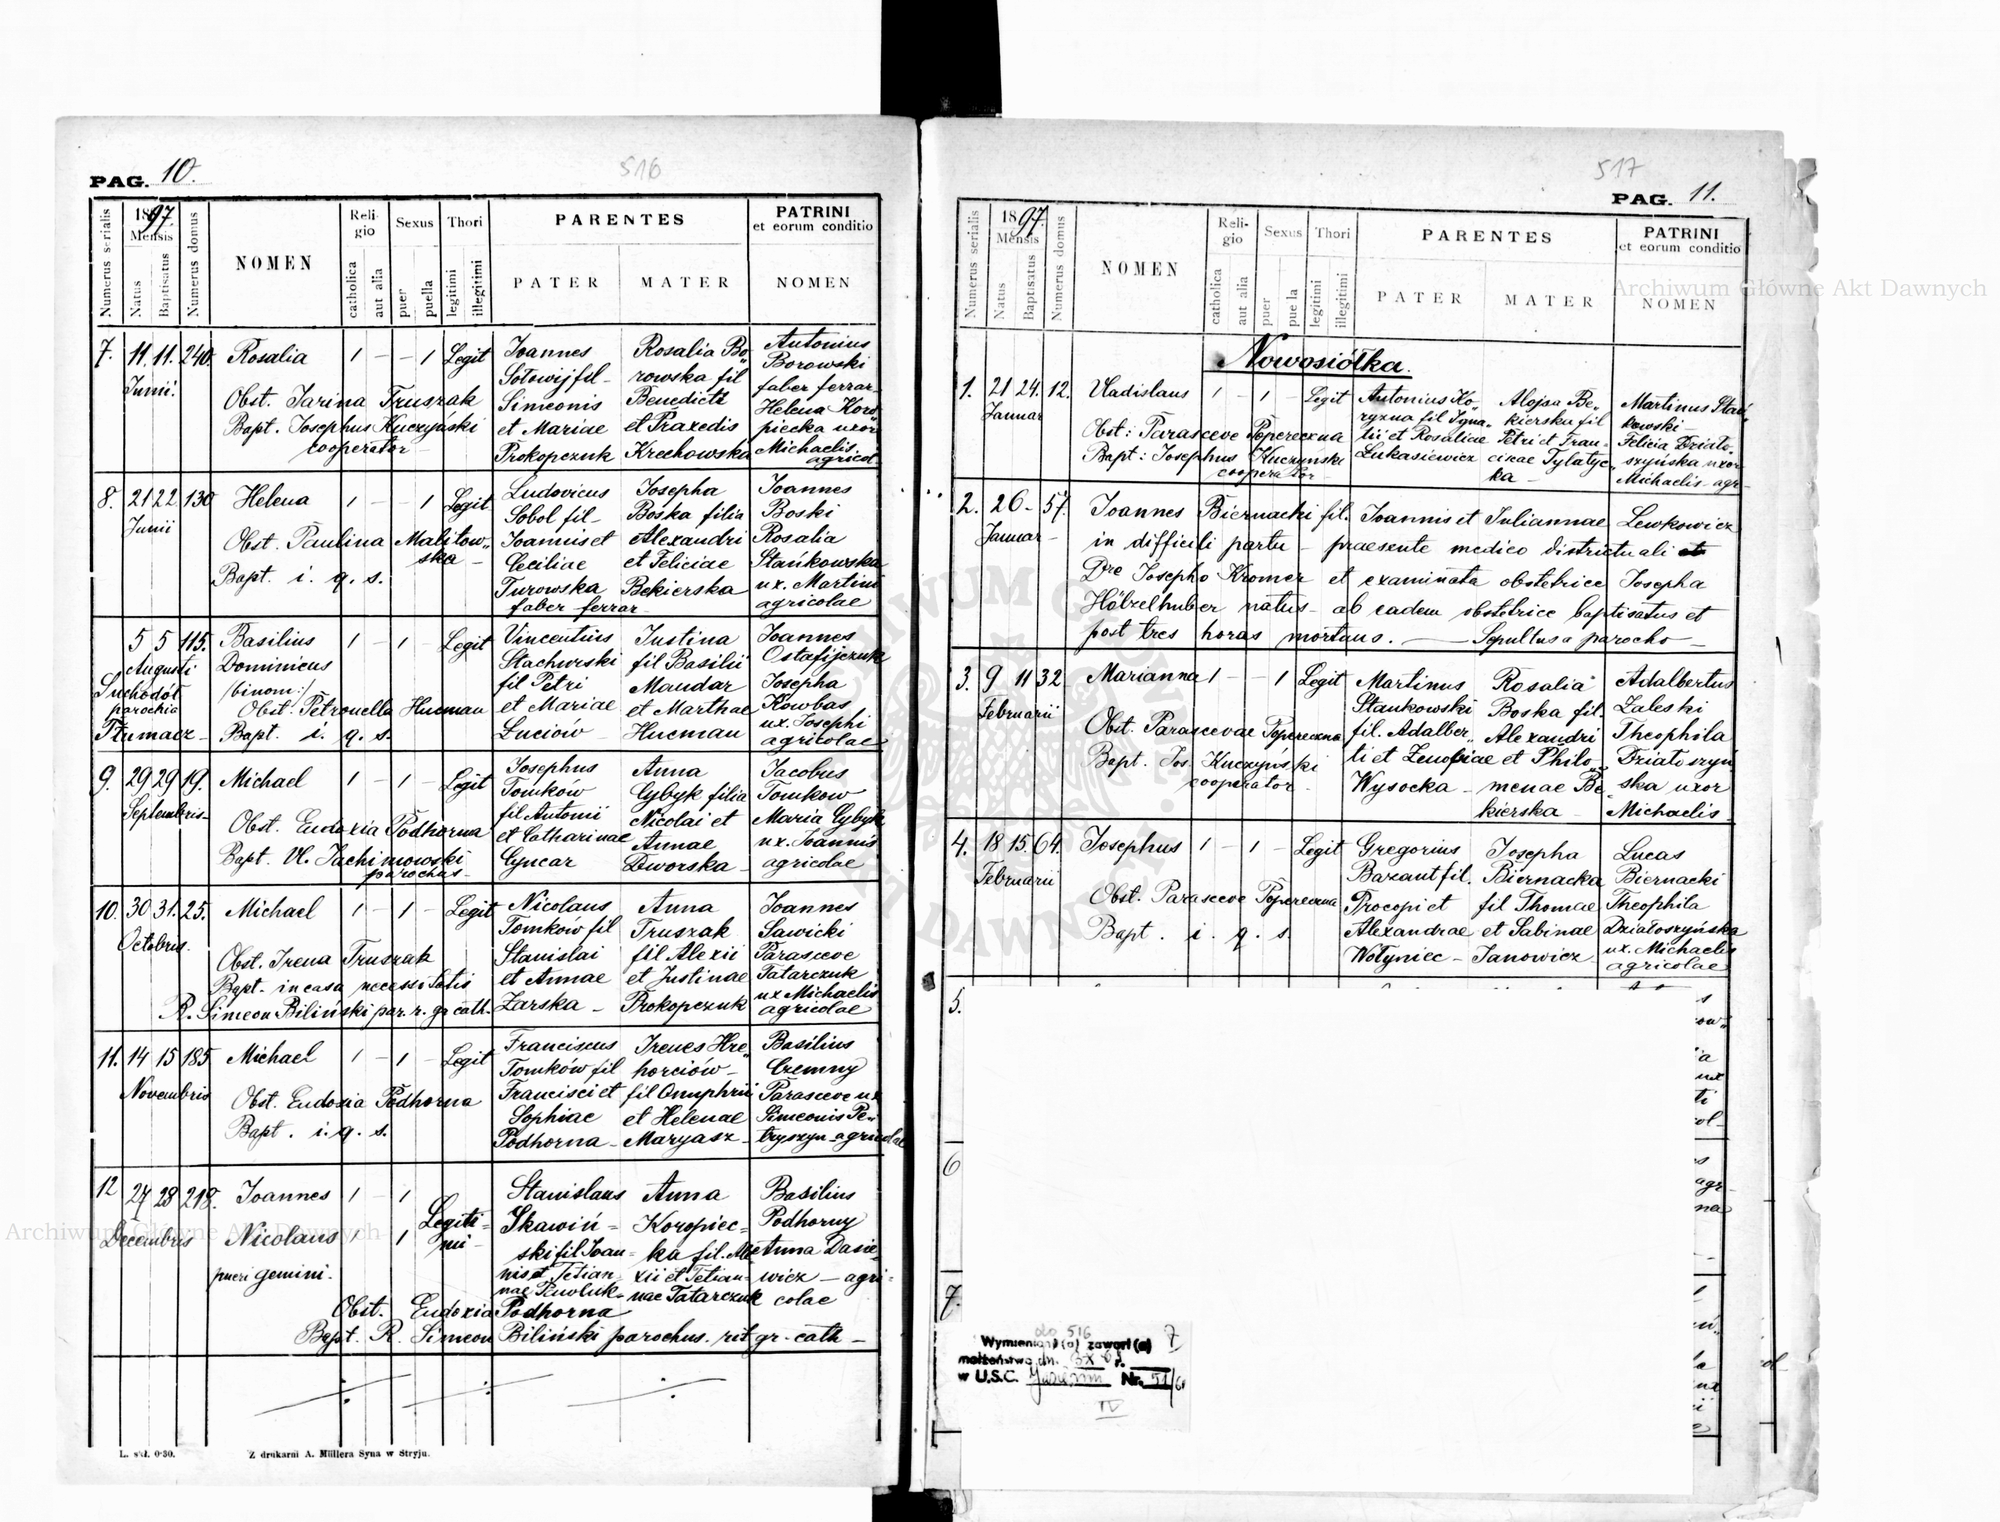 516
PAG. 10.
Numerus serialis
1897.
Mensis
Natus
Baptisatus
Numerus domus
NOMEN
Religio
catholica
aut alia
Sexus
puer
puella
Thori
legitimi
illegitimi
PARENTES
PATER
MATER
PATRINI
et eorum conditio
NOMEN
7. 11. 11. 240. Rosalia 1 – – 1 Legit
Junii.
Obst. Jarina Truszak
Bapt. Josephus Kuczyński
cooperator
Joannes
Sołowij fil
Simeonis
et Mariae
Prokopczuk
Rosalia Bo„
rowska fil
Benedicti
et Praxedis
Krechowska
Antonius
Borowski
faber ferrar
Helena Koro„
piecka uxor
Michaelis
agricol
8. 21 22 130 Helena 1 – – 1 Legit
Junii
Obst. Paulina Malitow„
ska –
Bapt. i. q. s.
Ludovicus
Sobol fil –
Joannis et
Ceciliae
Turowska
faber ferrar
Josepha
Boska filia
Alexandri
et Feliciae
Bekierska
Joannes
Boski
Rosalia
Stańkowska
ux. Martini
agricolae
5 5 115. Basilius 1 – 1 – Legit
Augusti
Dominicus
Suchodół
binom:/
parochia
Obst. Petronella Hucman
Tłumacz –
Bapt. i. q. s.
Vincentius
Stachwski
fil Petri
et Mariae
Łuciów
Justina
fil Basilii
Mandar
et Marthae
Hucman
Joannes
Ostafijczuk
Josepha
Kowbas
ux. Josephi
agricolae
9. 29 29 19. Michael 1 – 1 – Legit
Septembris
Obst. Eudoxia Podhorna
Bapt. Vl. Jachimowski
parochus
Josephus
Tomków
fil Antonii
et Catharinae
Cyncar
Anna
Cybyk filia
Nicolai et
Annae
Dworska –
Jacobus
Tomkow
Maria Cybyk
ux. Joannis
agricolae
10. 30 31. 25. Michael 1 – 1 – Legit
Octobris.
Obst. Irena Truszak
Bapt. in casu necessitatis
R. Simeon Biliński par. r. gr cath.
Nicolaus
Tomków fil
Stanislai
et Annae
Zarska –
Anna
Truszak
fil Alexii
et Justinae
Prokopczuk
Joannes
Sawicki
Parasceve
Tatarczuk
ux Michaelis
agricolae
11. 14 15 185 Michael 1 – 1 – Legit
Novembris
Obst. Eudoxia Podhorna
Bapt. i. q. s.
Franciscus
Tomków fil
Francisci et
Sophiae
Podhorna –
Irenes Hre„
horciów –
fil Onuphrii
et Helenae
Maryasz
Basilius
Czemny
Parasceve ux
Simeonis Pe„
tryszyn agricolae
12 27 28 218. Joannes 1 – 1
Decembris Nicolaus 1 1
Legiti=
mi –
pueri gemini.
Stanislaus
Skawiń=
ski fil Joan=
nis et Tetian
nae Pawluk
Anna
Koropiec=
ka fil. Ale
xii et Tetian=
nae Tatarczuk
Basilius
Podhorny
Anna Dasie
wicz – agri=
colae
Obst. Eudoxia Podhorna
Bapt. R. Simeon Biliński parochus. rit gr. cath –
L. skł. 0·30.
Z drukarni A. Müllera Syna w Stryju.
517
PAG. 11.
Numerus serialis
1897.
Mensis
Natus
Baptisatus
Numerus domus
NOMEN
Religio
catholica
aut alia
Sexus
puer
puella
Thori
legitimi
illegitimi
PARENTES
PATER
MATER
PATRINI
et eorum conditio
NOMEN
Nowosiółka.
1. 21 24. 12. Vladislaus 1 – 1 – Legit
Januar
Obst: Parasceve Popereczna
Bapt: Josephus Kuczyński
cooperator
Antonius Ko„
ryzna fil Igna„
tii et Rosaliae
Łukasiewicz
Alojsa Be„
kierska fil
Petri et Fran„
ciscae Tylatyc„
ka –
Martinus Stań„
kowski –
Felicia Działo„
szyńska uxor
Michaelis agr
2. 26 – 57. Joannes Biernacki fil. Joannis et Juliannae Lewkowicz
Januar – in difficili partu – praesente medico districtuali
Dre Josepho Kromer et examinata obstetrice Josepha
Hölzelhuber natus – ab eadem obstetrice baptisatus et
post tres horas mortuus. – Sepultus a parocho –
3. 9 11 32 Marianna 1 – – 1 Legit
Februarii
Obst. Parascevae Popereczna
Bapt. Jos. Kuczyński
cooperator
Martinus
Stankowski
fil. Adalber„
ti et Zenofiae
Wysocka –
Rosalia
Boska fil.
Alexandri
et Philo„
menae Be„
kierska
Adalbertus
Zaleski
Theophila
Działoszyń
ska uxor
Michaelis
4. 18 15. 64. Josephus 1 – 1 – Legit
Februarii
Obst. Parasceve Popereczna
Bapt. i. q. s.
Gregorius
Bazant fil.
Procopi et
Alexandrae
Wołyniec –
Josepha
Biernacka
fil Thomae
et Sabinae
Janowicz
Lucas
Biernacki
Theophila
Działoszyńska
ux. Michaelis
agricolae
5.
6
7.
do 516
Wymieniony(a) zawarł(a) 7
małżeństwo dn.
w U.S.C. Nr. 51/61
IV
Archiwum Główne Akt Dawnych
Archiwum Główne Akt Dawnych
ARCHIWUM GŁÓWNE AKT DAWNYCH